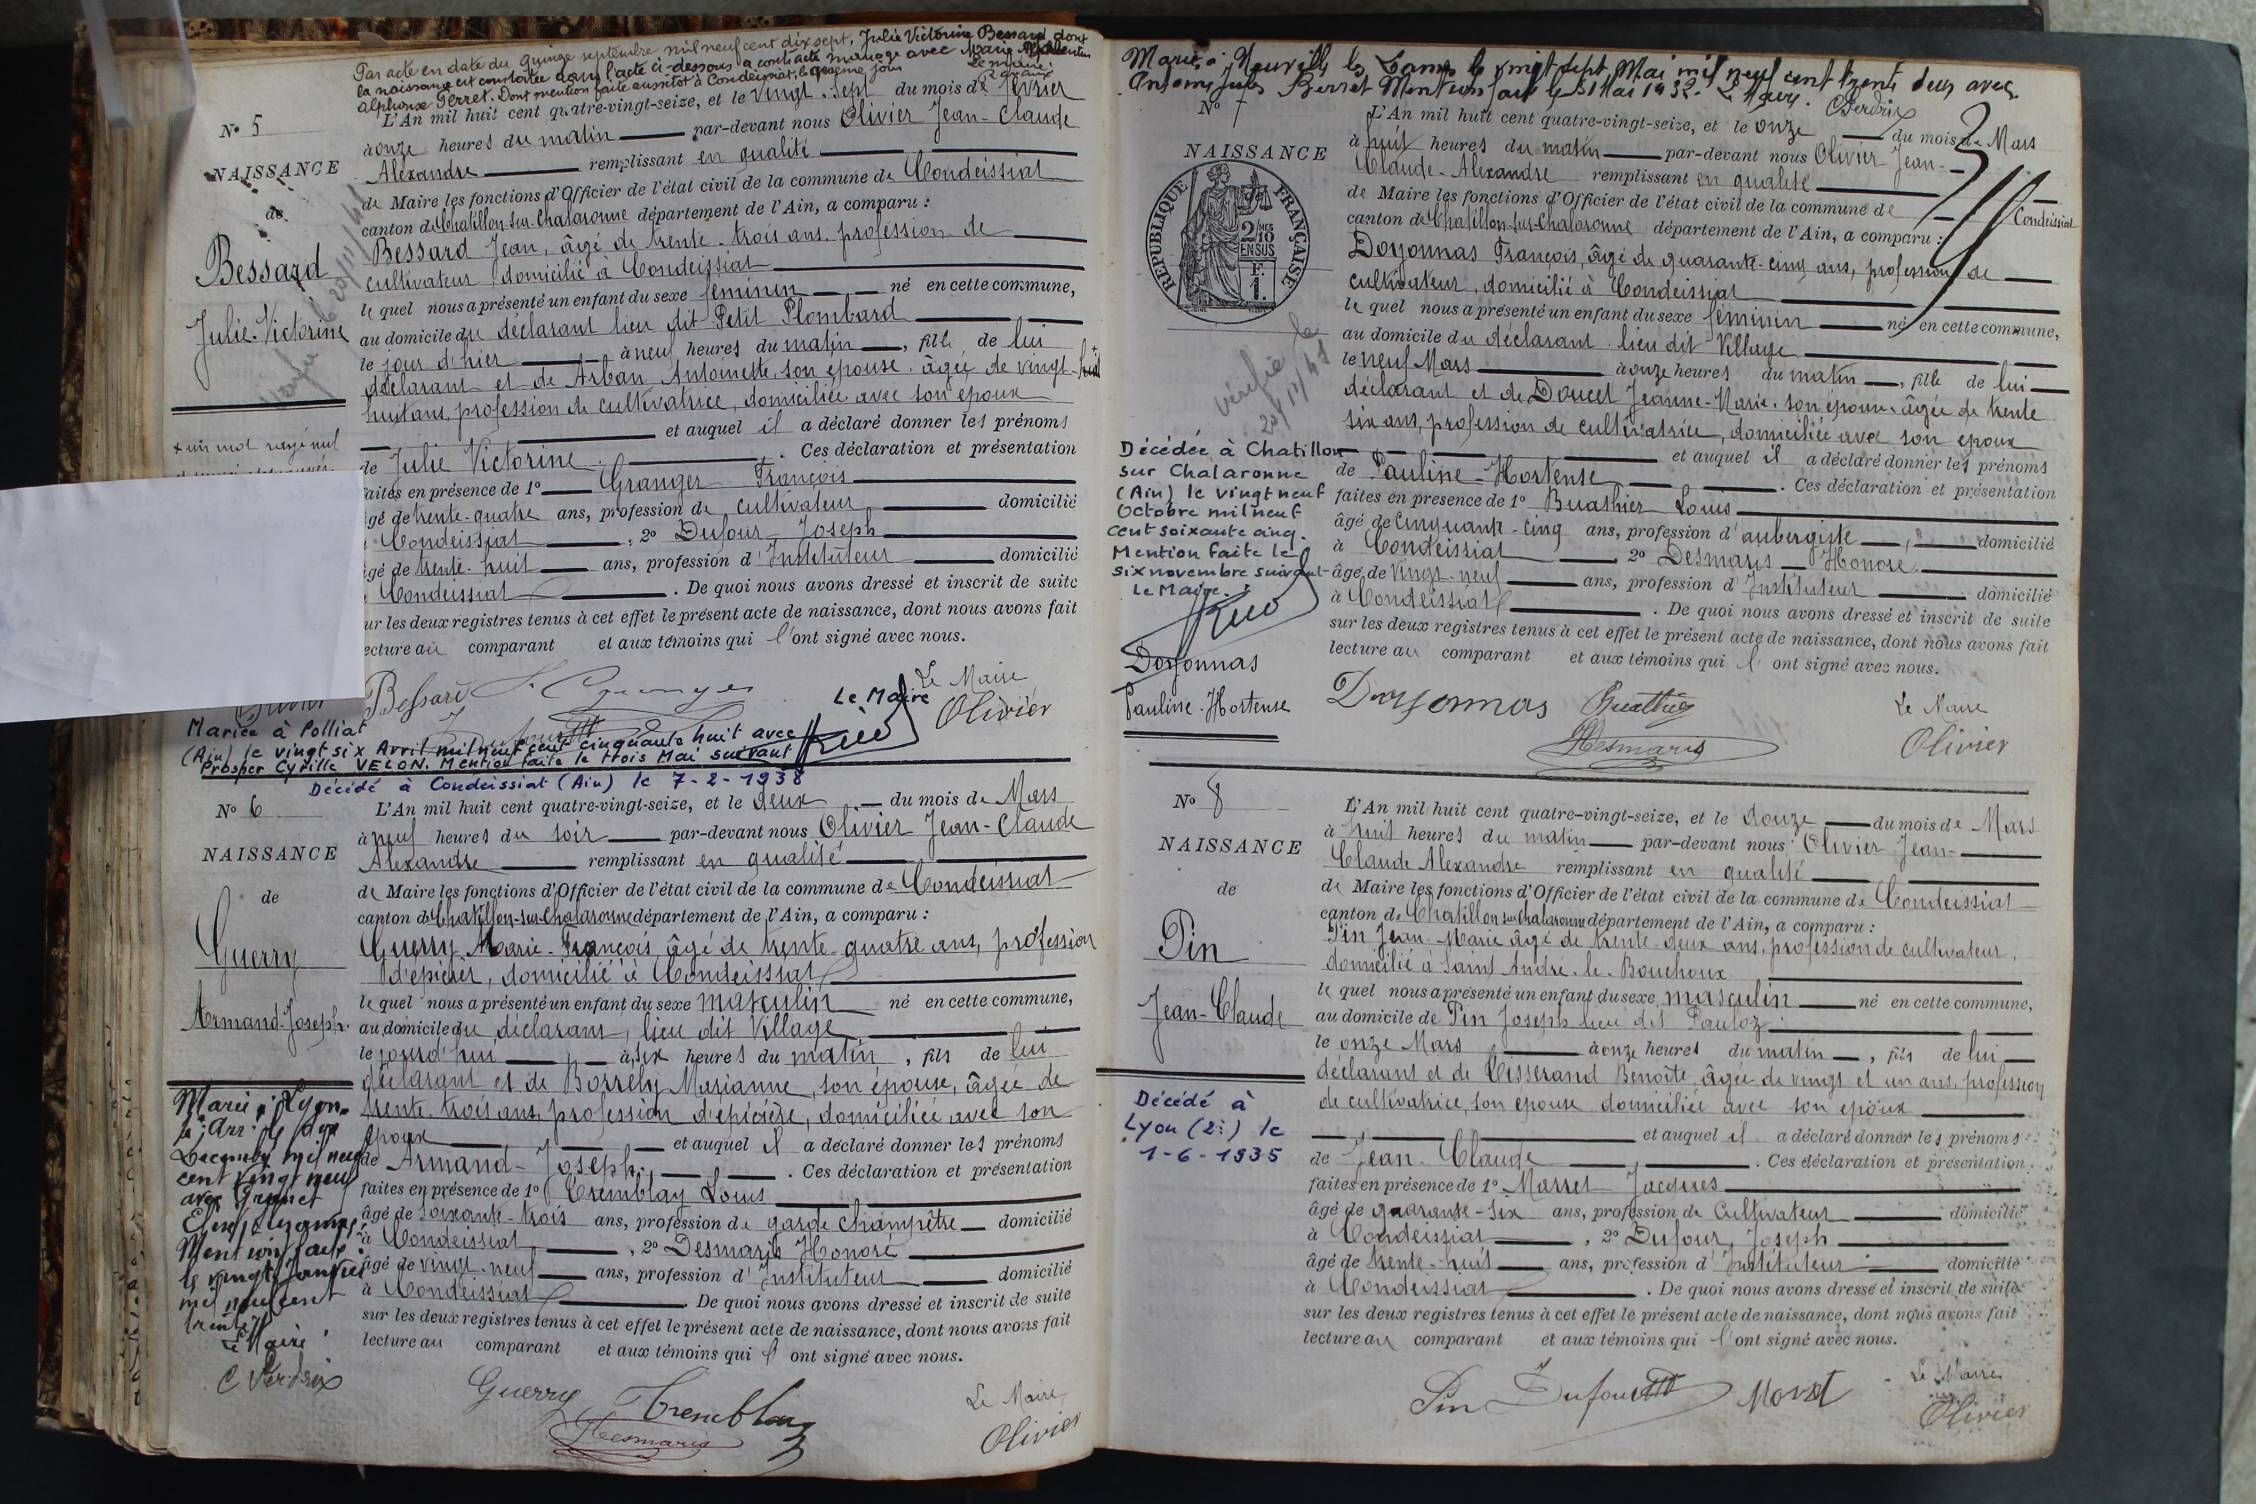 Par acte en date du quinze septembre mil neuf cent dix sept, Julie Victorine Bessard dont
la naissance est constatée dans l'acte ci-dessous a contracté mariage avec Marie
Alphonse Ferret. Dont mention faite aussitôt à Condeissiat, le même jour
Le maire
N° 5
NAISSANCE
de
Bessard
Julie-Victorine
Vérifié le 20/11/41
+ un mot rayé nul
L'An mil huit cent quatre-vingt-seize, et le vingt-sept du mois de février
à onze heures du matin par-devant nous Olivier Jean-Claude
Alexandre remplissant en qualité
de Maire les fonctions d'Officier de l'état civil de la commune de Condeissiat
canton de Chatillon-sur-Chalaronne département de l'Ain, a comparu :
Bessard Jean, âgé de trente-trois ans, profession de
cultivateur, domicilié à Condeissiat
le quel nous a présenté un enfant du sexe féminin né en cette commune,
au domicile du déclarant lieu dit Petit Plombard
le jour d'hier à neuf heures du matin, fille de lui
déclarant et de Arban Antoinette, son épouse, âgée de vingt-huit
huit ans, profession de cultivatrice, domiciliée avec son époux
et auquel il a déclaré donner les prénoms
de Julie Victorine. Ces déclaration et présentation
faites en présence de 1° Granger François
âgé de trente-quatre ans, profession de cultivateur domicilié
Condeissiat, 2° Dufour Joseph
âgé de trente-huit ans, profession d'Instituteur domicilié
Condeissiat. De quoi nous avons dressé et inscrit de suite
sur les deux registres tenus à cet effet le présent acte de naissance, dont nous avons fait
lecture au comparant et aux témoins qui l'ont signé avec nous.
Bessard Granger Le Maire
Dufour Olivier
Le Maire
Mariée à Polliat
(Ain) le vingt six Avril mil neuf cent cinquante huit avec
Prosper Cyrille VELON. Mention faite le trois Mai suivant
Décédé à Condeissiat (Ain) le 7-2-1938
N° 6
NAISSANCE
de
Guerry
Armand-Joseph.
L'An mil huit cent quatre-vingt-seize, et le deux du mois de Mars
à neuf heures du soir par-devant nous Olivier Jean-Claude
Alexandre remplissant en qualité
de Maire les fonctions d'Officier de l'état civil de la commune de Condeissiat
canton de Chatillon-sur-Chalaronne département de l'Ain, a comparu :
Guerry Marie-François, âgé de trente-quatre ans, profession
d'épicier, domicilié à Condeissiat
le quel nous a présenté un enfant du sexe masculin né en cette commune,
au domicile du déclarant, lieu dit Village
le jourd'hui à six heures du matin, fils de lui
déclarant et de Borrély Marianne, son épouse, âgée de
trente-trois ans, profession d'épicière, domiciliée avec son
époux et auquel il a déclaré donner les prénoms
de Armand-Joseph. Ces déclaration et présentation
faites en présence de 1° Tremblay Louis
âgé de soixante-trois ans, profession de garde champêtre domicilié
à Condeissiat, 2° Desmaris Honoré
âgé de vingt-neuf ans, profession d'Instituteur domicilié
à Condeissiat. De quoi nous avons dressé et inscrit de suite
sur les deux registres tenus à cet effet le présent acte de naissance, dont nous avons fait
lecture au comparant et aux témoins qui l'ont signé avec nous.
Marié à Lyon
Décembre mil neuf
cent vingt neuf
avec
Mention faite
le vingt Janvier
mil neuf cent
trente
Le Maire
C Perdrix
Guerry Tremblay Le Maire
Desmaris Olivier
Mariée à Neuville les Dames le vingt sept Mai mil neuf cent trente deux avec
Antoine Jules Berret Mention faite le 31 Mai 1932. Le Maire.
CPerdrix
N° 7
NAISSANCE
REPUBLIQUE FRANÇAISE
2/10
EN SUS
F.
1.
Vérifié le
20/11/41
Décédée à Chatillon
sur Chalaronne
(Ain) le vingt neuf
Octobre mil neuf
cent soixante cinq.
Mention faite le
six novembre suivant
Le Maire.
Doyonnas
Pauline-Hortense
L'An mil huit cent quatre-vingt-seize, et le onze du mois de Mars
à huit heures du matin par-devant nous Olivier Jean-
Claude-Alexandre remplissant en qualité
de Maire les fonctions d'Officier de l'état civil de la commune de Condeissiat
canton de Chatillon-sur-Chalaronne département de l'Ain, a comparu :
Doyonnas François, âgé de quarante-cinq ans, profession de
cultivateur, domicilié à Condeissiat
le quel nous a présenté un enfant du sexe féminin né en cette commune,
au domicile du déclarant lieu dit Village
le neuf Mars à onze heures du matin, fille de lui
déclarant et de Doucet Jeanne-Marie, son épouse, âgée de trente
six ans, profession de cultivatrice, domiciliée avec son époux
et auquel il a déclaré donner les prénoms
de Pauline-Hortense. Ces déclaration et présentation
faites en présence de 1° Buathier Louis
âgé de cinquante-cinq ans, profession d'aubergiste, domicilié
à Condeissiat 2° Desmaris Honoré
âgé de vingt-neuf ans, profession d'Instituteur domicilié
à Condeissiat. De quoi nous avons dressé et inscrit de suite
sur les deux registres tenus à cet effet le présent acte de naissance, dont nous avons fait
lecture au comparant et aux témoins qui l'ont signé avec nous.
Doyonnas Buathier Le Maire
Desmaris Olivier
N° 8
NAISSANCE
de
Pin
Jean-Claude
Décédé à
Lyon (2è) le
1-6-1935
L'An mil huit cent quatre-vingt-seize, et le douze du mois de Mars
à huit heures du matin par-devant nous Olivier Jean-
Claude Alexandre remplissant en qualité
de Maire les fonctions d'Officier de l'état civil de la commune de Condeissiat
canton de Chatillon sur Chalaronne département de l'Ain, a comparu :
Pin Jean-Marie âgé de trente-deux ans, profession de cultivateur,
domicilié à Saint André-le-Bouchoux
le quel nous a présenté un enfant du sexe masculin né en cette commune,
au domicile de Pin Joseph lieu dit Pauloz
le onze Mars à onze heures du matin, fils de lui
déclarant et de Tisserand Benoîte, âgée de vingt et un ans, profession
de cultivatrice, son épouse domiciliée avec son époux
et auquel il a déclaré donner les prénoms
de Jean-Claude. Ces déclaration et présentation
faites en présence de 1° Morret Jacques
âgé de quarante-six ans, profession de cultivateur domicilié
à Condeissiat, 2° Dufour Joseph
âgé de trente-huit ans, profession d'Instituteur domicilié
à Condeissiat. De quoi nous avons dressé et inscrit de suite
sur les deux registres tenus à cet effet le présent acte de naissance, dont nous avons fait
lecture au comparant et aux témoins qui l'ont signé avec nous.
Pin Dufour Le Maire
Olivier